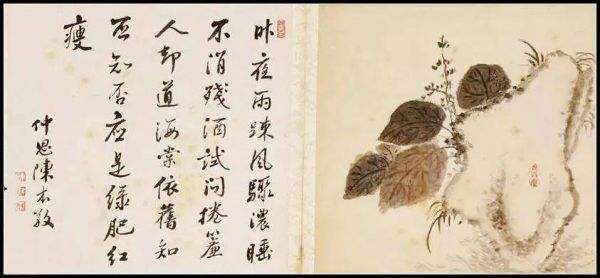 昨夜雨疎風驟濃睡
不消殘酒試問捲簾
人却道海棠依舊知
否知否應是綠肥紅
瘦
仲思陳本敬